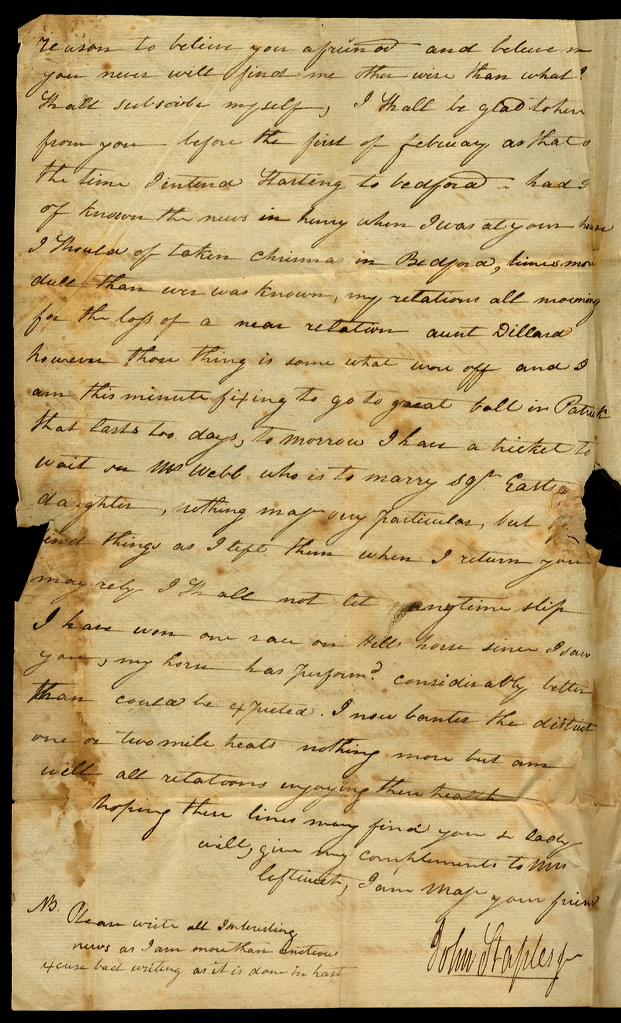 reason to believe you a friend and believe m
you never will find me other wise than what I
Shall subscribe myself, I Shall be glad to hear
from you before the first of february as that s
the time I intend Starting to bedford - had I
of known the news in henry when I was at your house
I Should of taken Chrismas in Bedford, times more
dull than ever was known, my relations all mourning
for the loss of a near relation aunt Dillard
however those thing is some what wore off and I
am this minute fixing to go to great ball in Patrick
that lasts too days, to morrow I have a ticket to
wait on Mr Webb who is to marry Sqr
daughter, nothing more very particular, but
find things as I left them when I return you
may rely I Shall not let time slip
I have won one race on Hills horse since I saw
you, my horse has perform'd considerably better
than could be expected. I now banter the district
one or two mile heats nothing more but am
well all relations enjoying there health
hoping these lines may find you & lady
well, give my complements to Mrs
leftwich, I am your friend
John Staples jr
NB. Please write all Interesting
news as I am more than anctious
excuse bad writing as it is done in hast